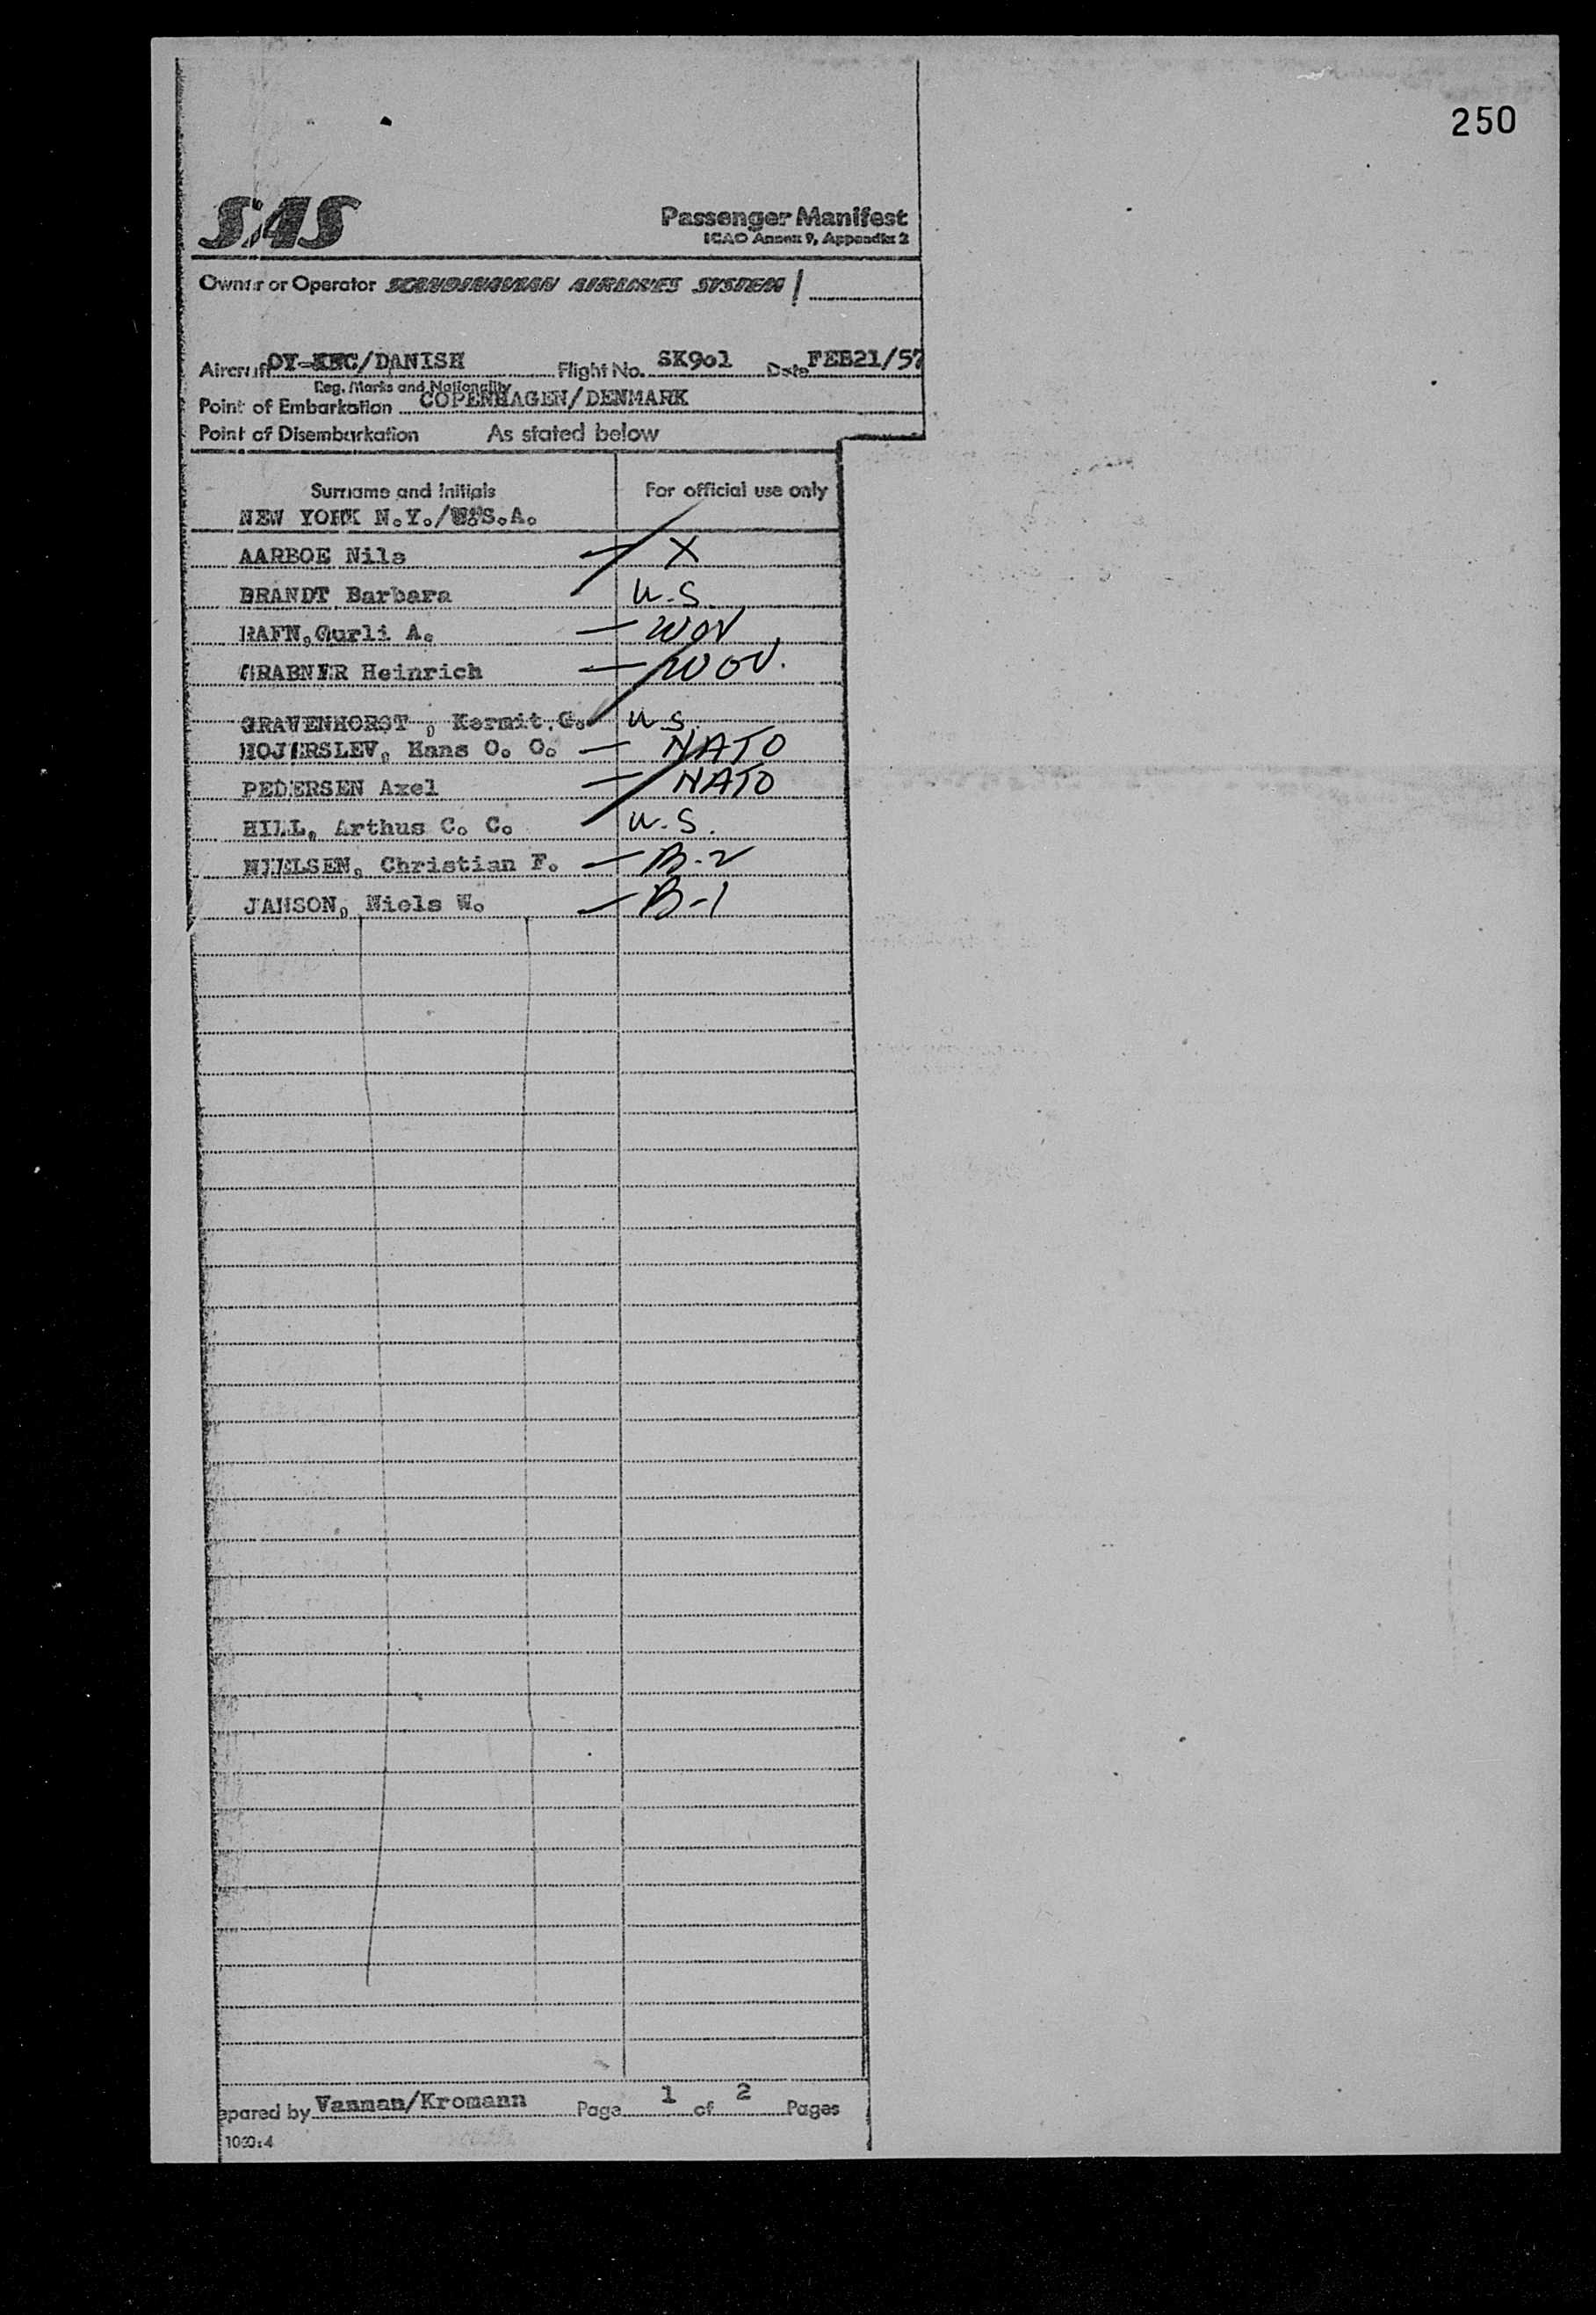 250
SAS
Passenger Manifest
ICAO Annex 9, Appendix 2
Owner or Operator SCANDINAVIAN AIRLINES SYSTEM
Aircraft OY-KMC/DANISH Flight No. SK901 Date FEB21/57
Reg. Marks and Nationality
Point of Embarkation COPENHAGEN/DENMARK
Point of Disembarkation As stated below
Surname and Initials For official use only
NEW YORK N.Y./U.S.A.
AARBOE Nils — X
BRANDT Barbara U.S.
RAFN, Gurli A. — WOV
GRABNER Heinrich — WOV.
GRAVENHORST, Kermit G. U.S.
HOJERSLEV, Hans O. O. — NATO
PEDERSEN Axel — NATO
HILL, Arthus C. C. U.S.
NIELSEN, Christian F. — B-2
JANSON, Niels W. — B-1
epared by Vanman/Kromann Page 1 of 2 Pages